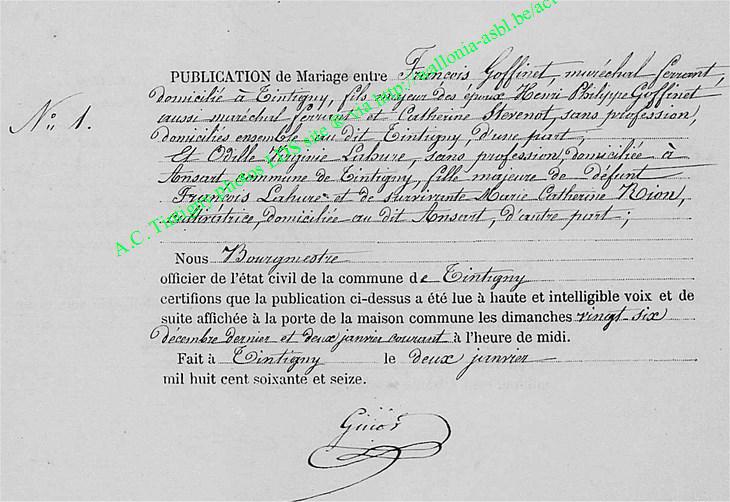 PUBLICATION de Mariage entre François Goffinet, maréchal ferrant,
domicilié à Tintigny, fils majeur des époux Henri Philippe Goffinet
aussi maréchal ferrant et Catherine Stevenot, sans profession,
domiciliés ensemble au dit Tintigny, d'une part;
N° 1.
Et Odille Virginie Lahure, sans profession, domiciliée à
Ansart commune de Tintigny, fille majeure de défunt
François Lahure et de survivante Marie Catherine Rion,
cultivatrice, domiciliée au dit Ansart, d'autre part;
Nous Bourgmestre
officier de l'état civil de la commune de Tintigny
certifions que la publication ci-dessus a été lue à haute et intelligible voix et de
suite affichée à la porte de la maison commune les dimanches vingt six
décembre dernier et deux janvier courant à l'heure de midi.
Fait à Tintigny le deux janvier
mil huit cent soixante et seize.
A.C. Tintigny photos LDS site @ via http://wallonia-asbl.be/act